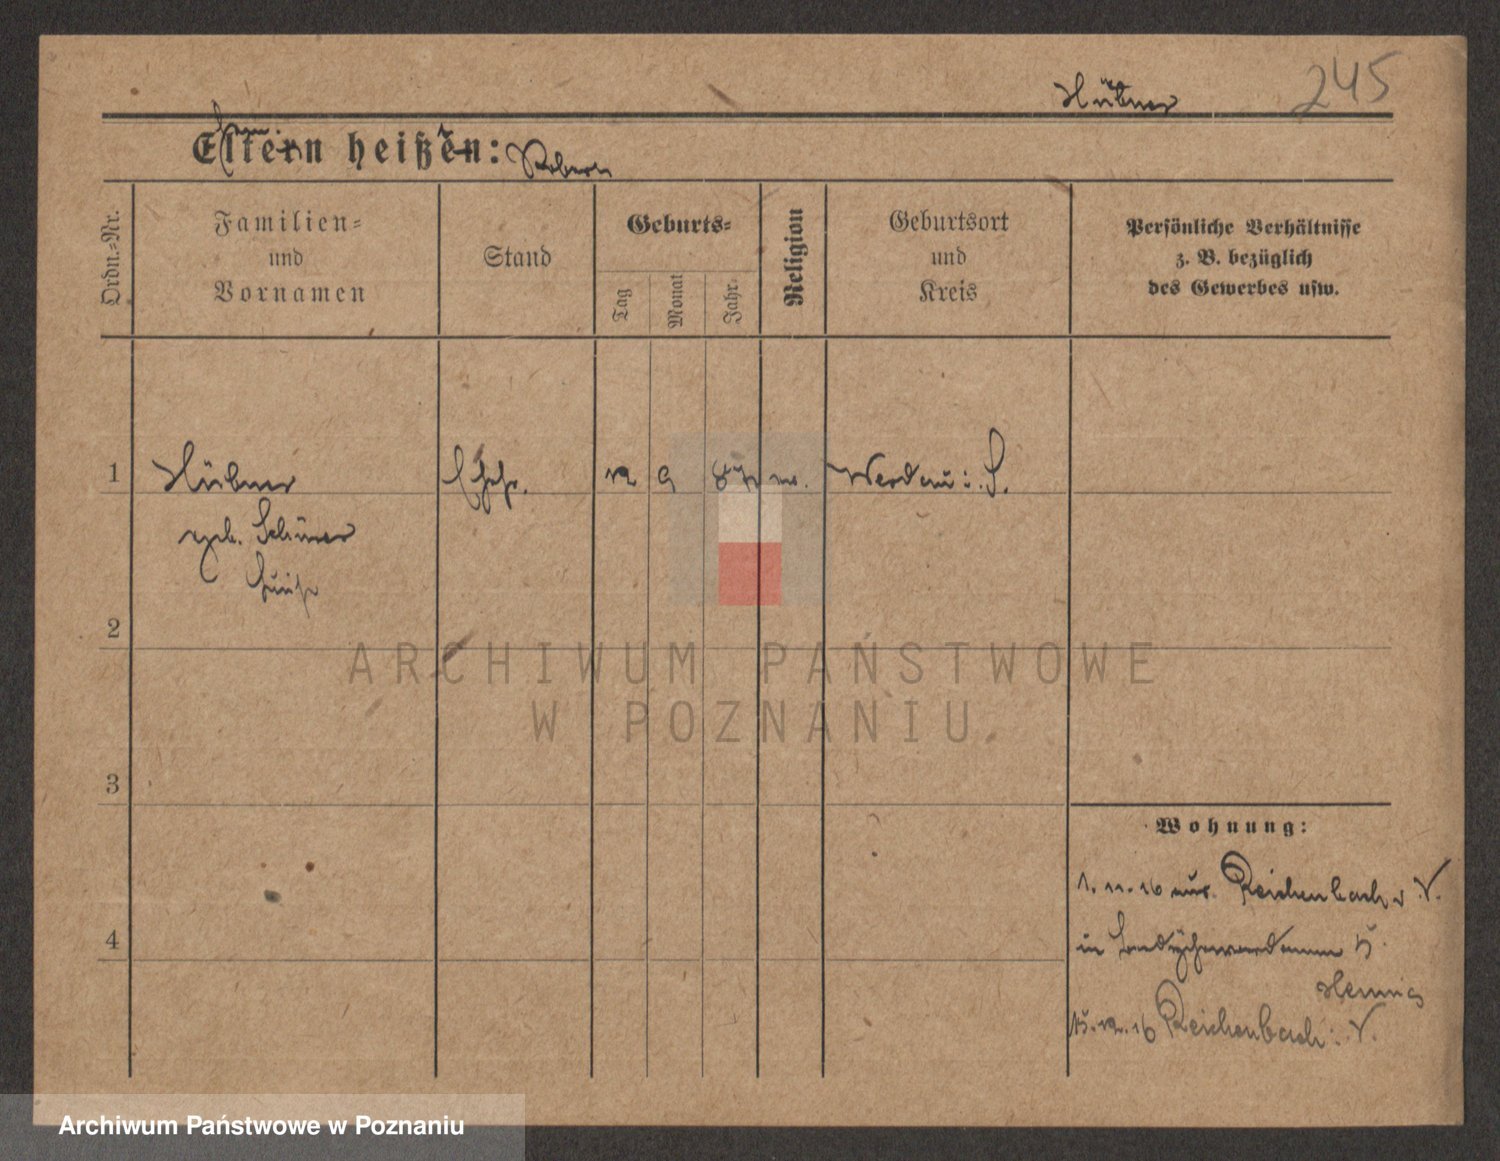 Hübner 245
Eltern heißen: Robert
Ordn.-Nr.
Familien-
und
Vornamen
Stand
Geburts-
Tag
Monat
Jahr
Religion
Geburtsort
und
Kreis
Persönliche Verhältnisse
z. B. bezüglich
des Gewerbes usw.
1 Hübner Ehefr. 12 9 87 Werdau i. S.
geb.
2
3
4
Wohnung:
1. 11. 16 aus Reichenbach i. V.
in 5
Hennig
15. 12. 16 Reichenbach i. V.
ARCHIWUM PAŃSTWOWE
W POZNANIU
Archiwum Państwowe w Poznaniu